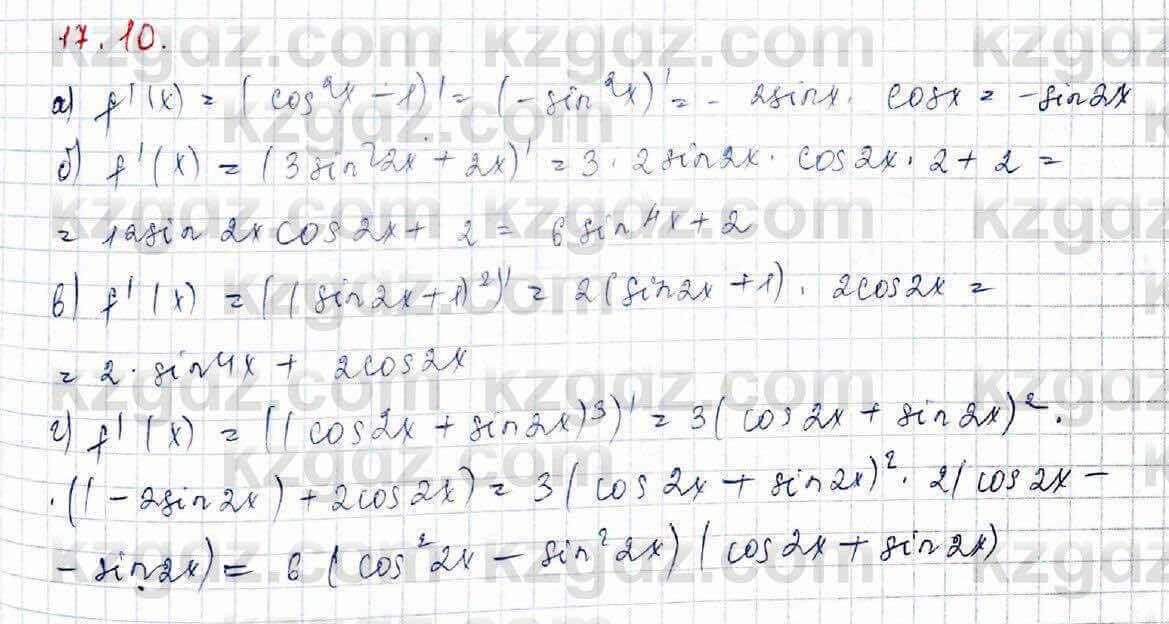 17.10.
а) f'(x) = (cos²x - 1)' = (-sin²x)' = - 2sinx · cosx = -sin2x
б) f'(x) = (3sin²2x + 2x)' = 3 · 2sin2x · cos2x · 2 + 2 =
= 12sin2xcos2x + 2 = 6sin4x + 2
в) f'(x) = ((sin2x+1)²)' = 2(sin2x+1) · 2cos2x =
= 2 · sin4x + 2cos2x
г) f'(x) = ((cos2x + sin2x)³)' = 3(cos2x + sin2x)² ·
· ((-2sin2x) + 2cos2x) = 3(cos2x + sin2x)² · 2(cos2x -
- sin2x) = 6(cos²2x - sin²2x)(cos2x + sin2x)
kzgdz.com